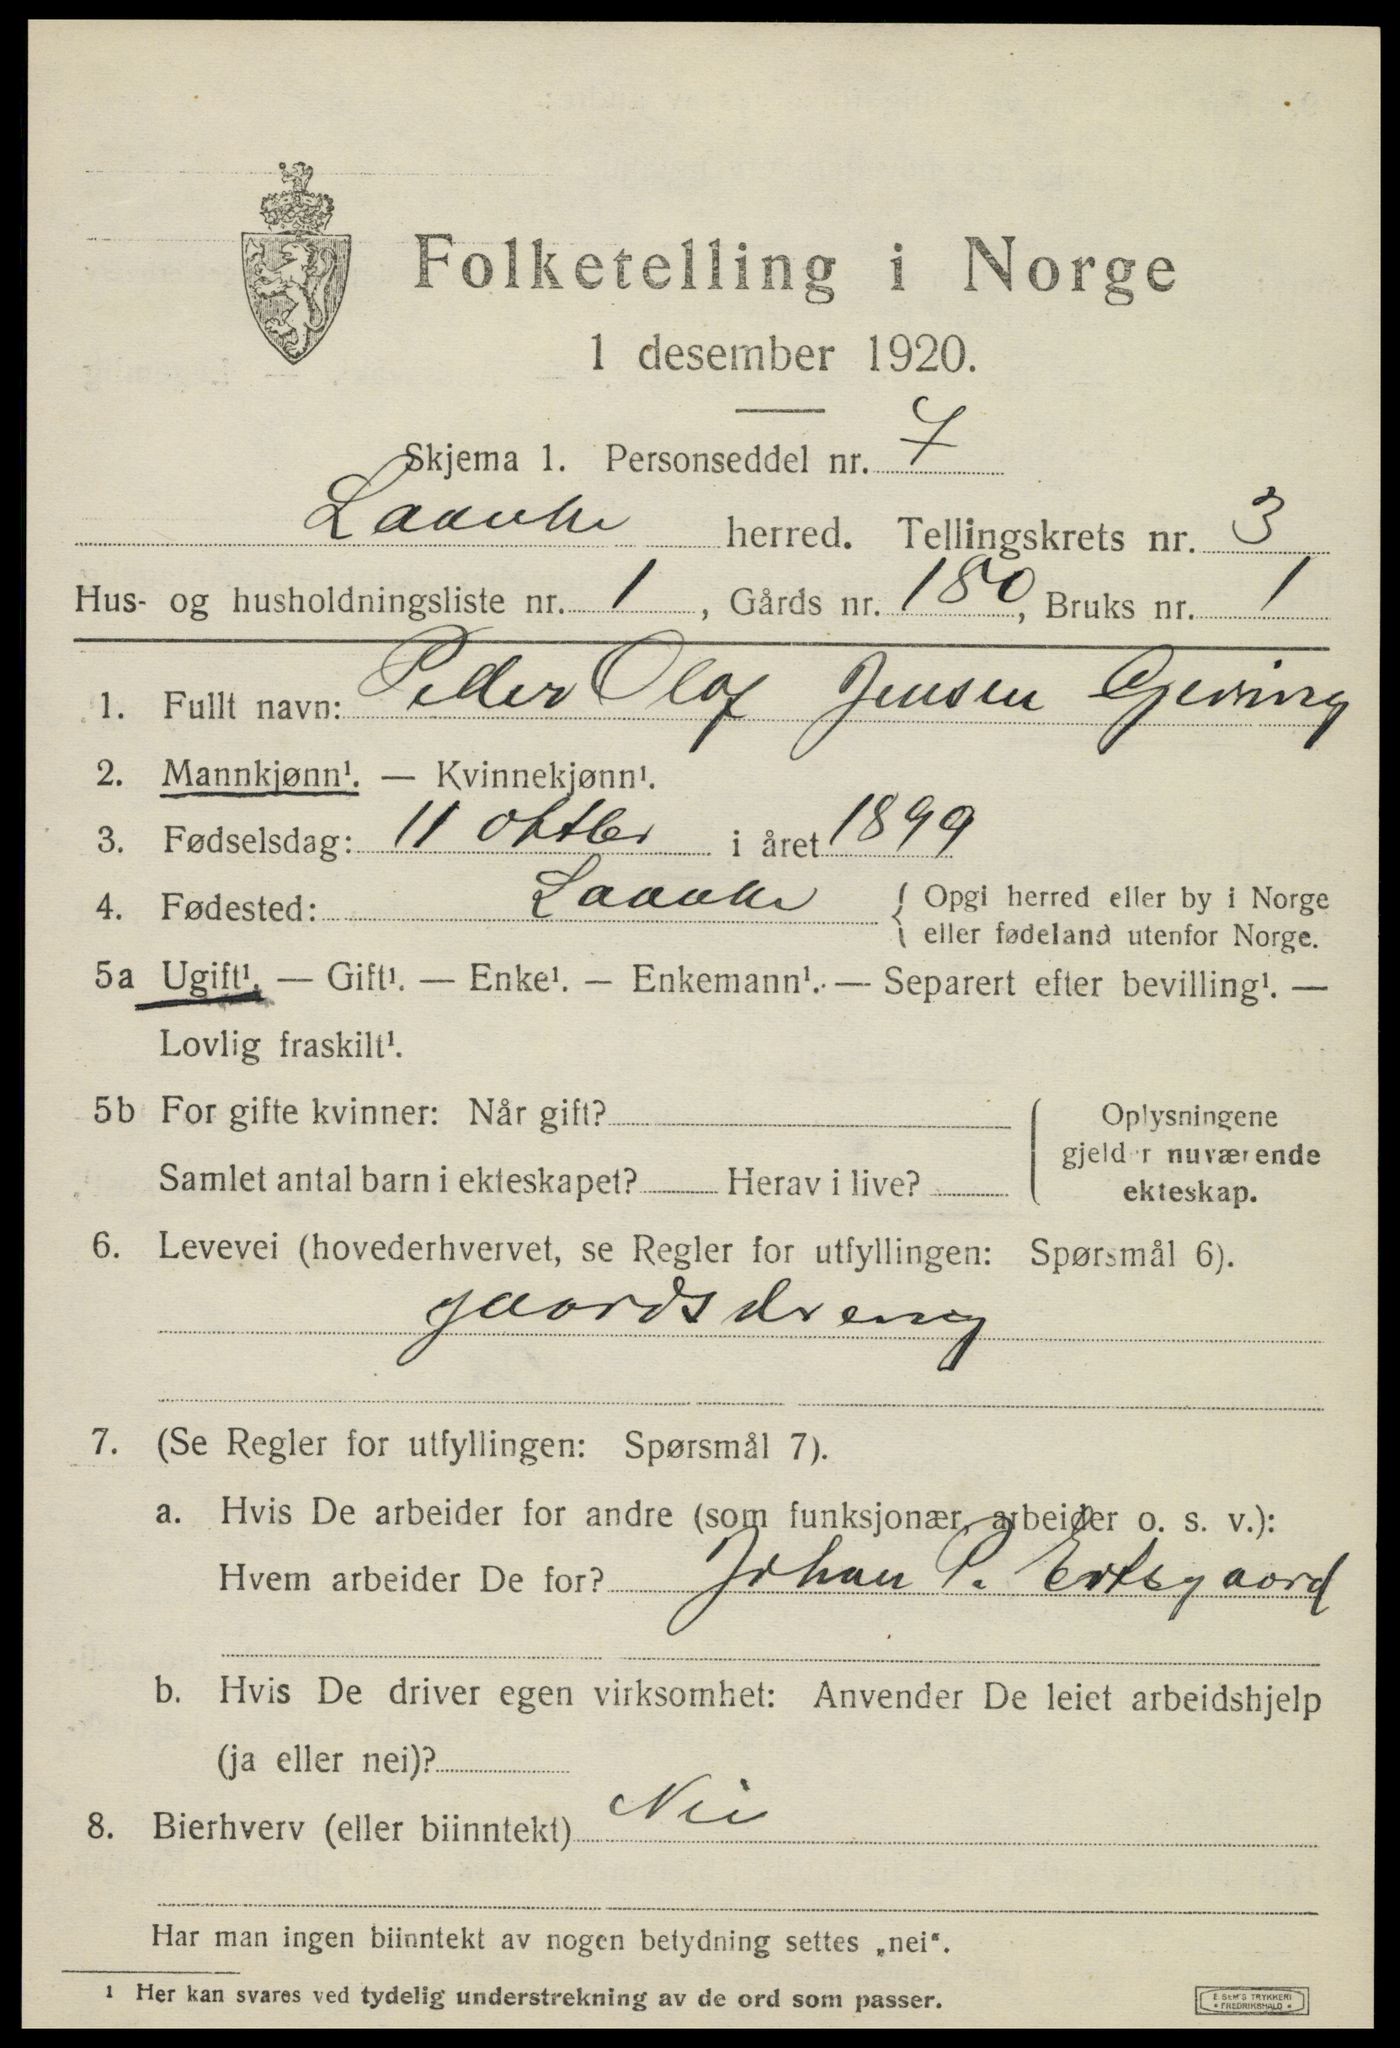 Folketelling i Norge
1 desember 1920.
Skjema 1. Personseddel nr. 7
Laanke herred. Tellingskrets nr. 3
Hus- og husholdningsliste nr. 1, Gårds nr. 180, Bruks nr. 1
1. Fullt navn: Peder Olaf Jensen Gjeving
2. Mannkjønn¹. — Kvinnekjønn¹.
3. Fødselsdag: 11 oktber i året 1899
4. Fødested: Laanke { Opgi herred eller by i Norge
eller fødeland utenfor Norge.
5a Ugift¹. — Gift¹. — Enke¹. — Enkemann¹. — Separert efter bevilling¹. —
Lovlig fraskilt¹.
5b For gifte kvinner: Når gift? { Oplysningene
gjelder nuværende
Samlet antal barn i ekteskapet? Herav i live? ekteskap.
6. Levevei (hovederhvervet, se Regler for utfyllingen: Spørsmål 6).
gaardsdreng
7. (Se Regler for utfyllingen: Spørsmål 7).
a. Hvis De arbeider for andre (som funksjonær, arbeider o. s. v.):
Hvem arbeider De for? Johan P. Ertsgaard
b. Hvis De driver egen virksomhet: Anvender De leiet arbeidshjelp
(ja eller nei)?
8. Bierhverv (eller biinntekt) Nei
Har man ingen biinntekt av nogen betydning settes „nei“.
1 Her kan svares ved tydelig understrekning av de ord som passer.
E. SEM'S TRYKKERI
* FREDRIKSHALD *